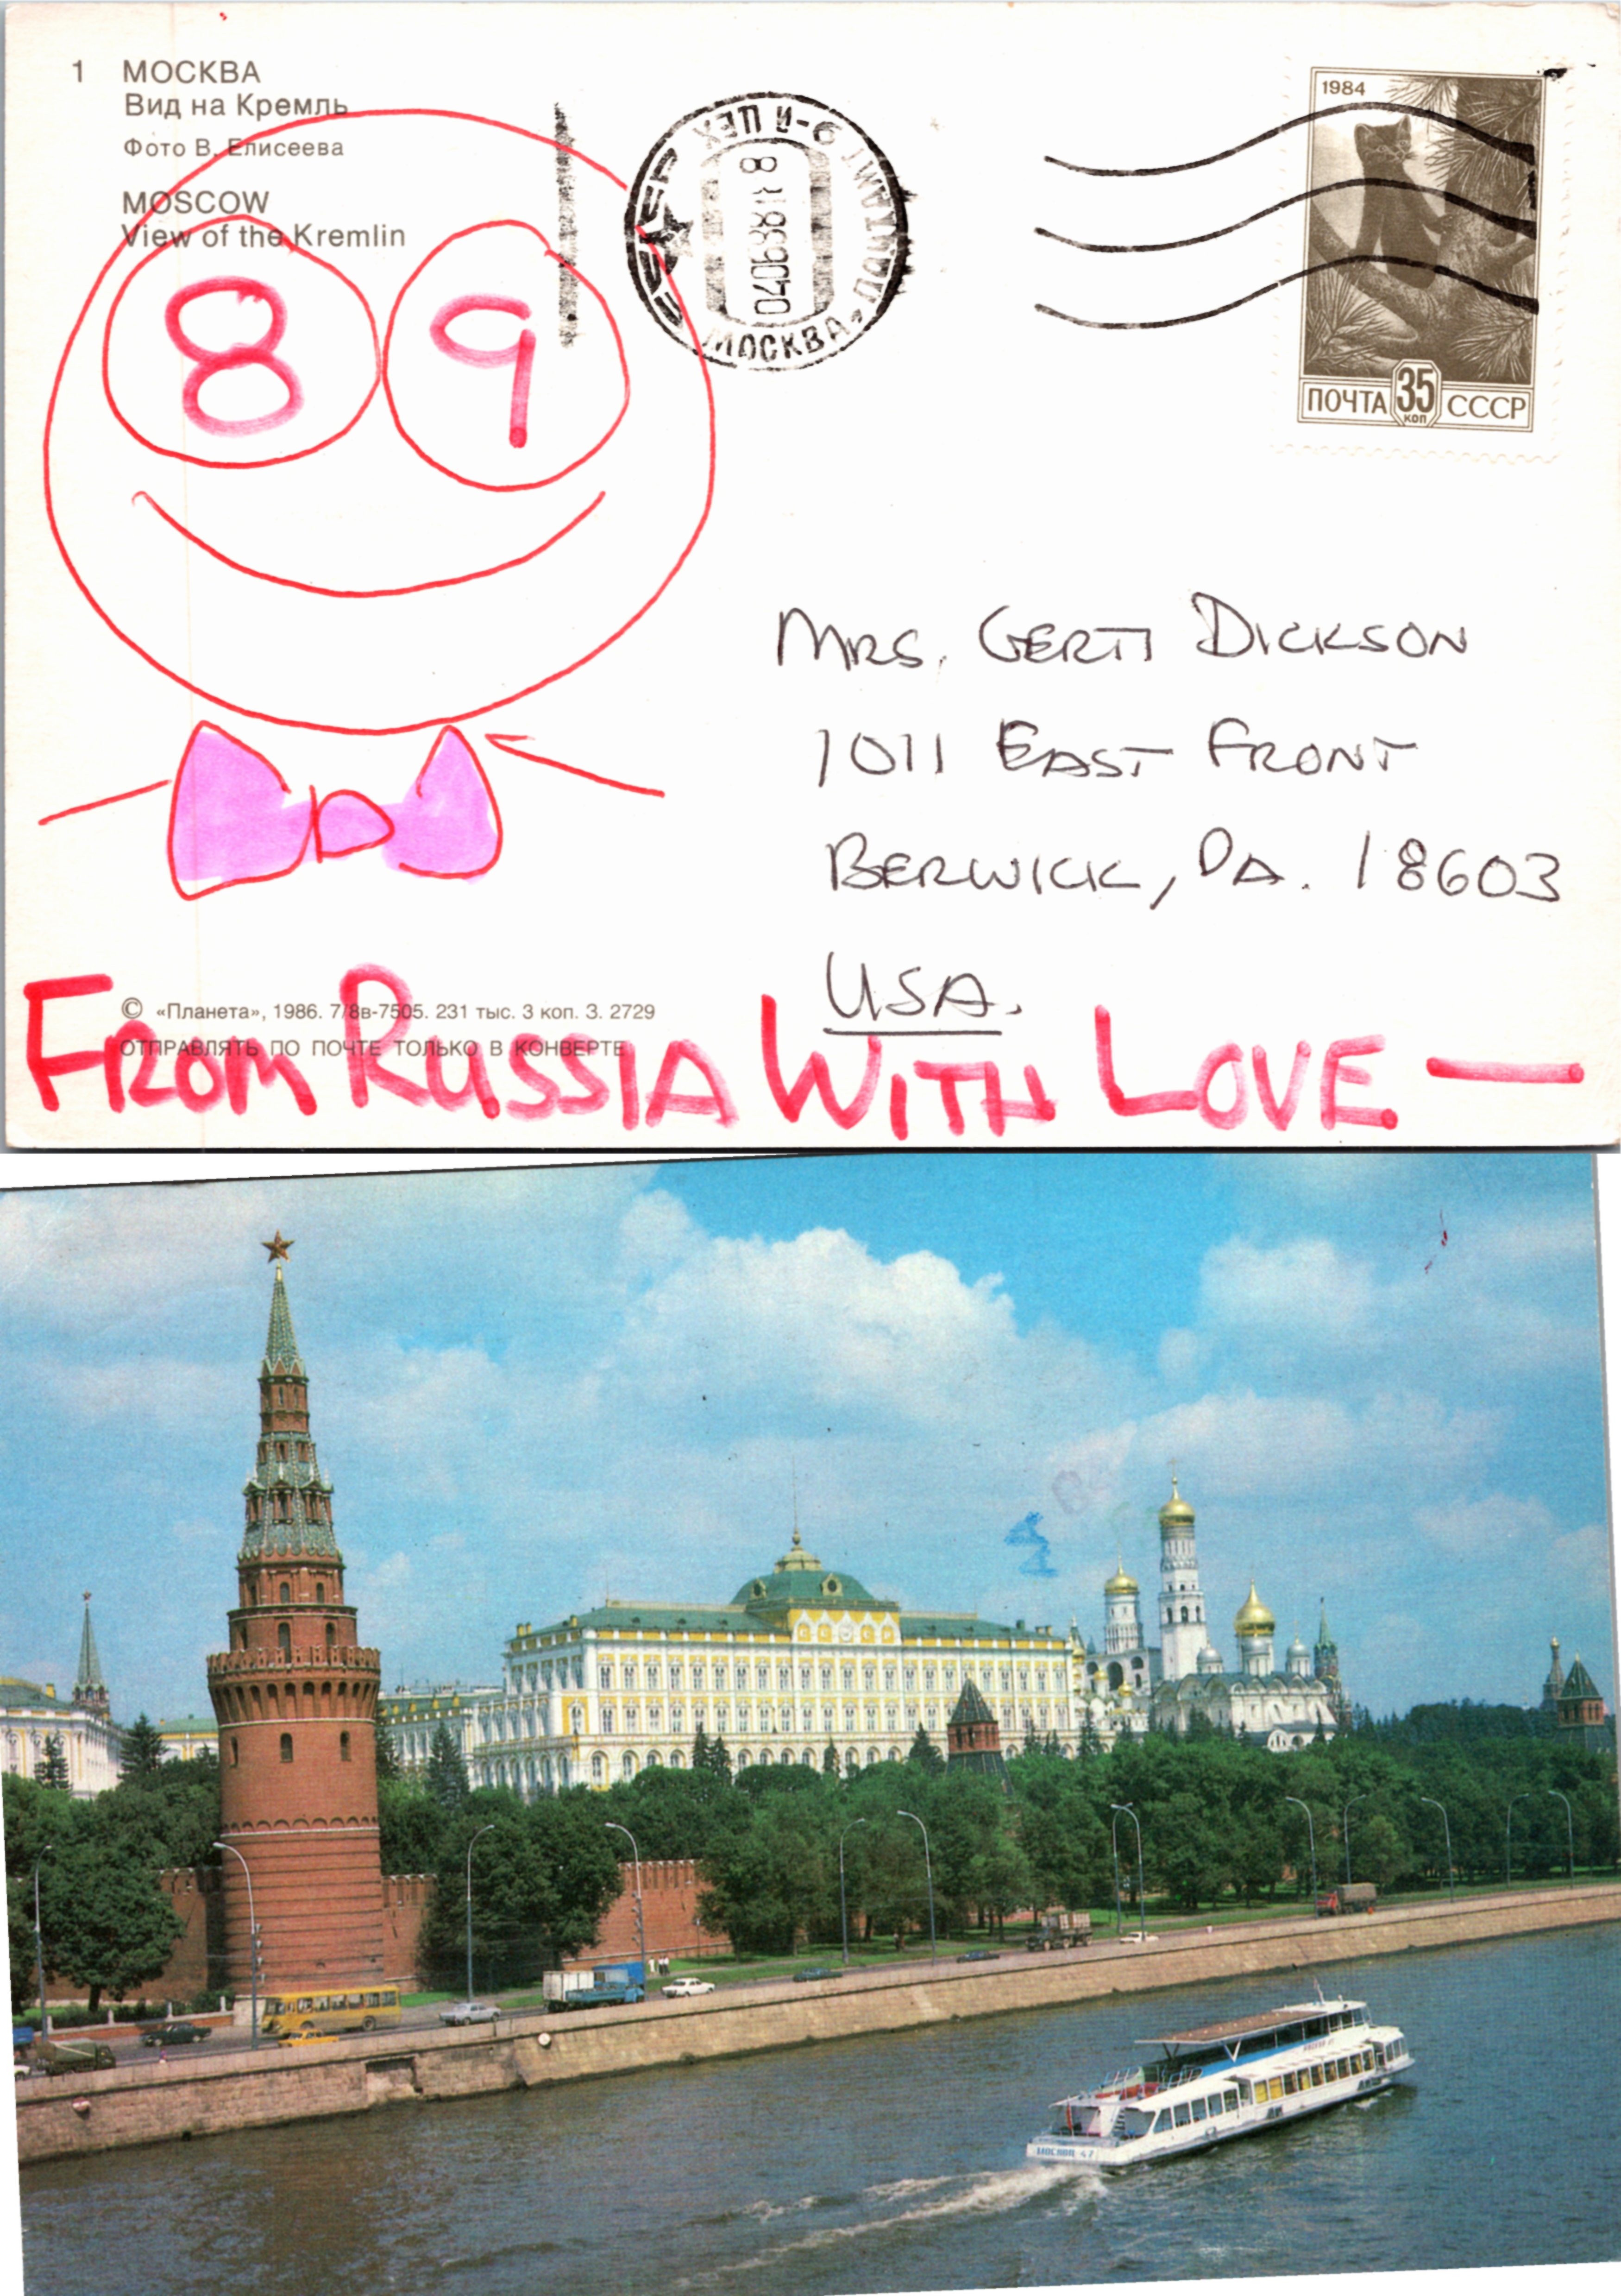 1 МОСКВА
Вид на Кремль
Фото В. Елисеева
MOSCOW
View of the Kremlin
89
СССР
9-й ЦЕХ
МОСКВА
8
1984
ПОЧТА 35 КОП СССР
MRS. GERTI DICKSON
1011 EAST FRONT
BERWICK, PA. 18603
USA.
© «Планета», 1986. 7/8в-7505. 231 тыс. 3 коп. З. 2729
ОТПРАВЛЯТЬ ПО ПОЧТЕ ТОЛЬКО В КОНВЕРТЕ
FROM RUSSIA WITH LOVE —
МОСКВА 47